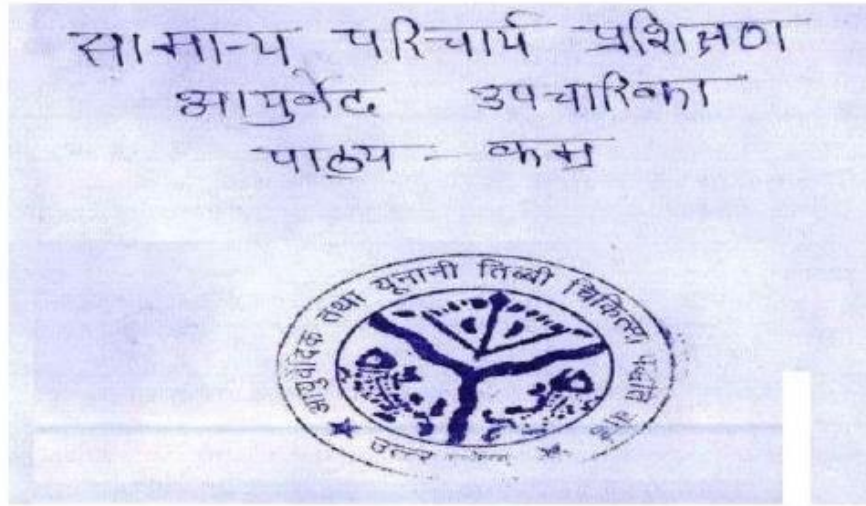 सामान्य परिचार्य प्रशिक्षण
आयुर्वेद उपचारिका
पाठ्य - क्रम
आयुर्वेदिक तथा यूनानी तिब्बी चिकित्सा पद्धति बोर्ड
उत्तर